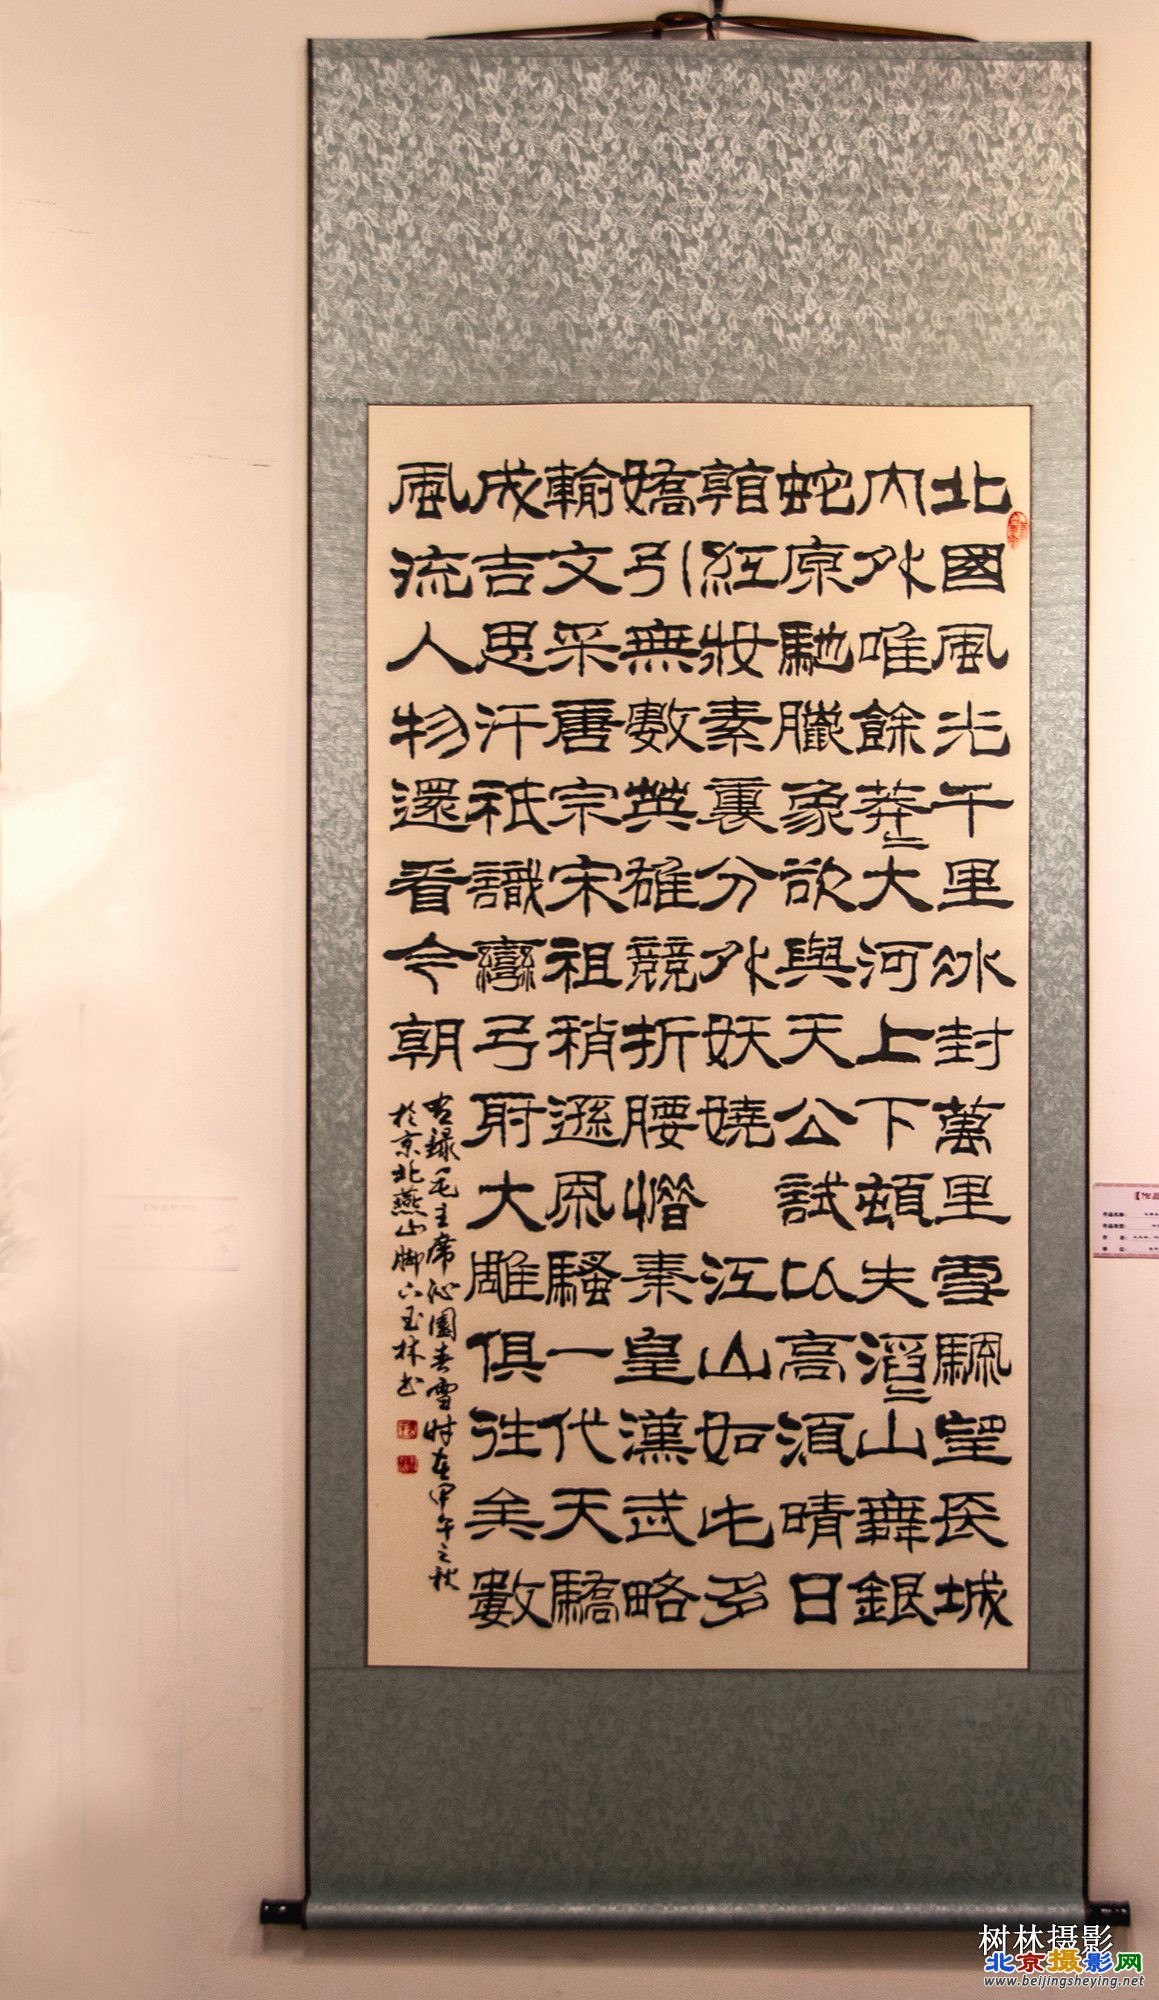 北國風光千里冰封萬里雪飄望長城
内外唯餘莽=大河上下頓失滔=山舞銀
蛇原馳臘象欲與天公試以高須晴日
紅妝素裹分外妖嬈 江山如此多
嬌引無數英雄競折腰惜秦皇漢武略
輸文采唐宗宋祖稍遜風騷一代天驕
成吉思汗祇識彎弓射大雕俱往矣數
風流人物還看今朝
錄毛主席沁園春雪時在甲午之秋
於京北燕山腳下玉林書
作品名称:
作品类型:
作 者:
单 位:
树林摄影
北京摄影网
www.beijingsheying.net